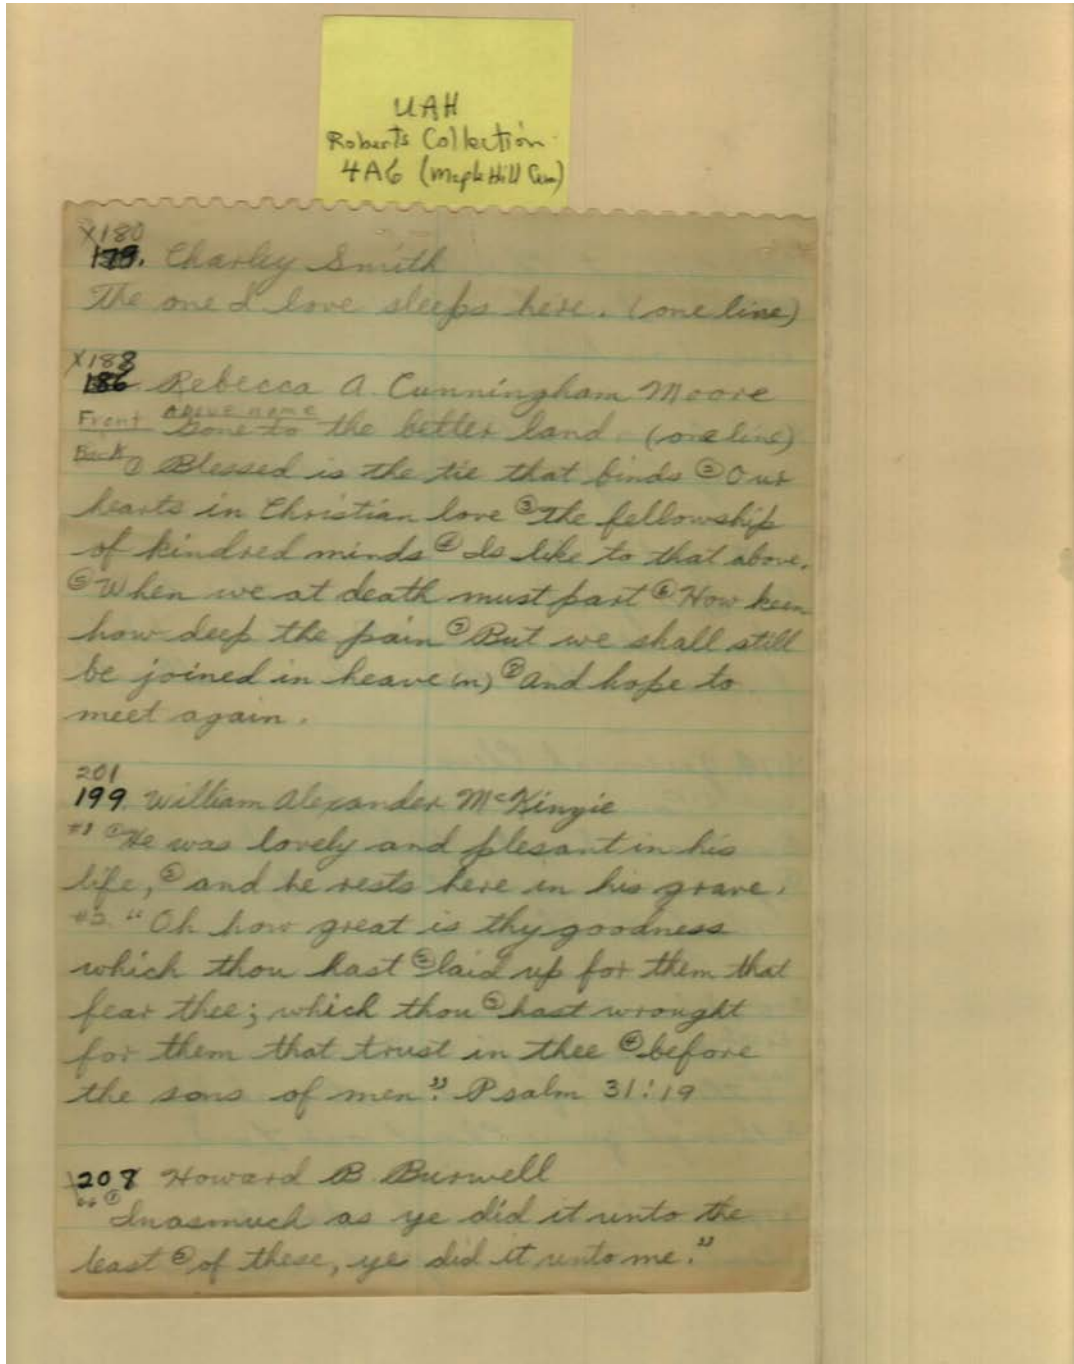 UAH
Roberts Collection
4A6 (Maple Hill Cem)
X180
179. Charley Smith
The one I love sleeps here. (one line)
X188
186 Rebecca A. Cunningham Moore
Front above name Gone to the better land. (one line)
Back ① Blessed is the tie that binds ② Our
hearts in Christian love ③ The fellowship
of kindred minds ④ Is like to that above.
⑤ When we at death must part ⑥ How keen
how deep the pain ⑦ But we shall still
be joined in heave(n) ⑧ And hope to
meet again.
201
199. William Alexander McKinzie
#1 ① He was lovely and plesant in his
life, ② and he rests here in his grave.
"Oh how great is thy goodness
which thou hast ② laid up for them that
fear thee; which thou ③ hast wrought
for them that trust in thee ④ before
the sons of men". Psalm 31:19
208 Howard B. Burwell
"① Inasmuch as ye did it unto the
least ② of these, ye did it unto me."